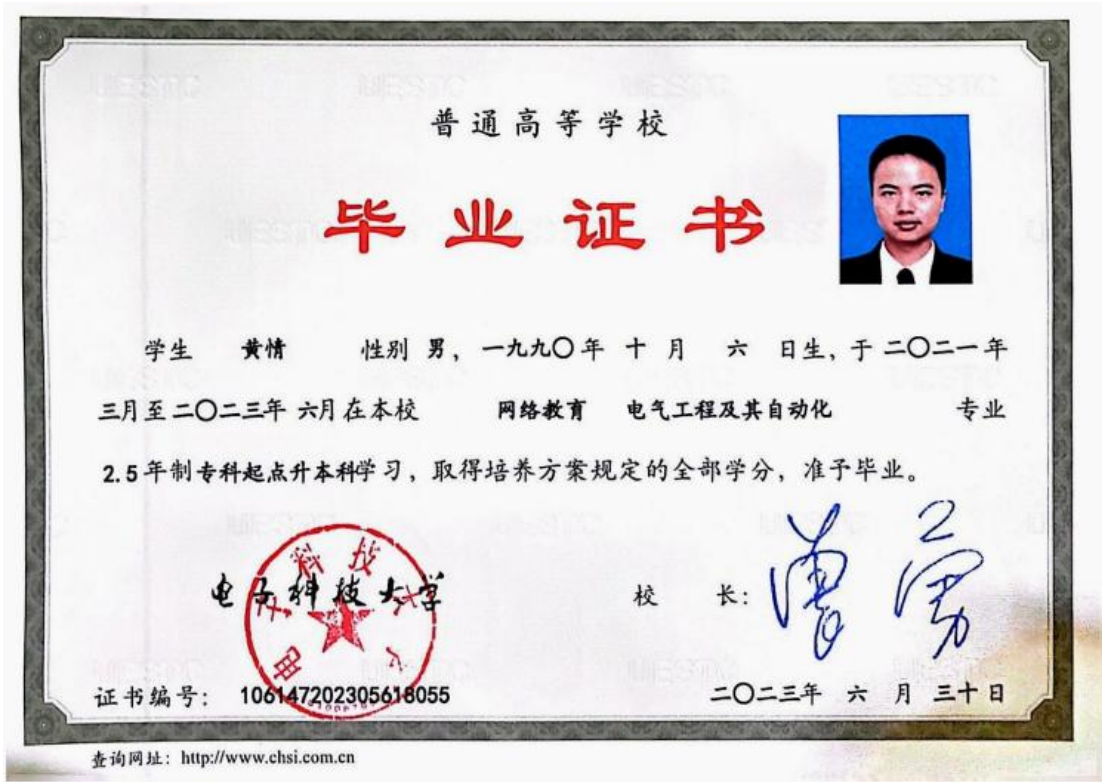 普通高等学校
毕业证书
学生 黄情 性别 男，一九九〇年 十 月 六 日生，于二〇二一年
三月至二〇二三年 六月在本校 网络教育 电气工程及其自动化 专业
2.5年制专科起点升本科学习，取得培养方案规定的全部学分，准予毕业。
电子科技大学
校 长：曾勇
证书编号： 106147202305618055
二〇二三年 六 月 三十日
查询网址：http://www.chsi.com.cn